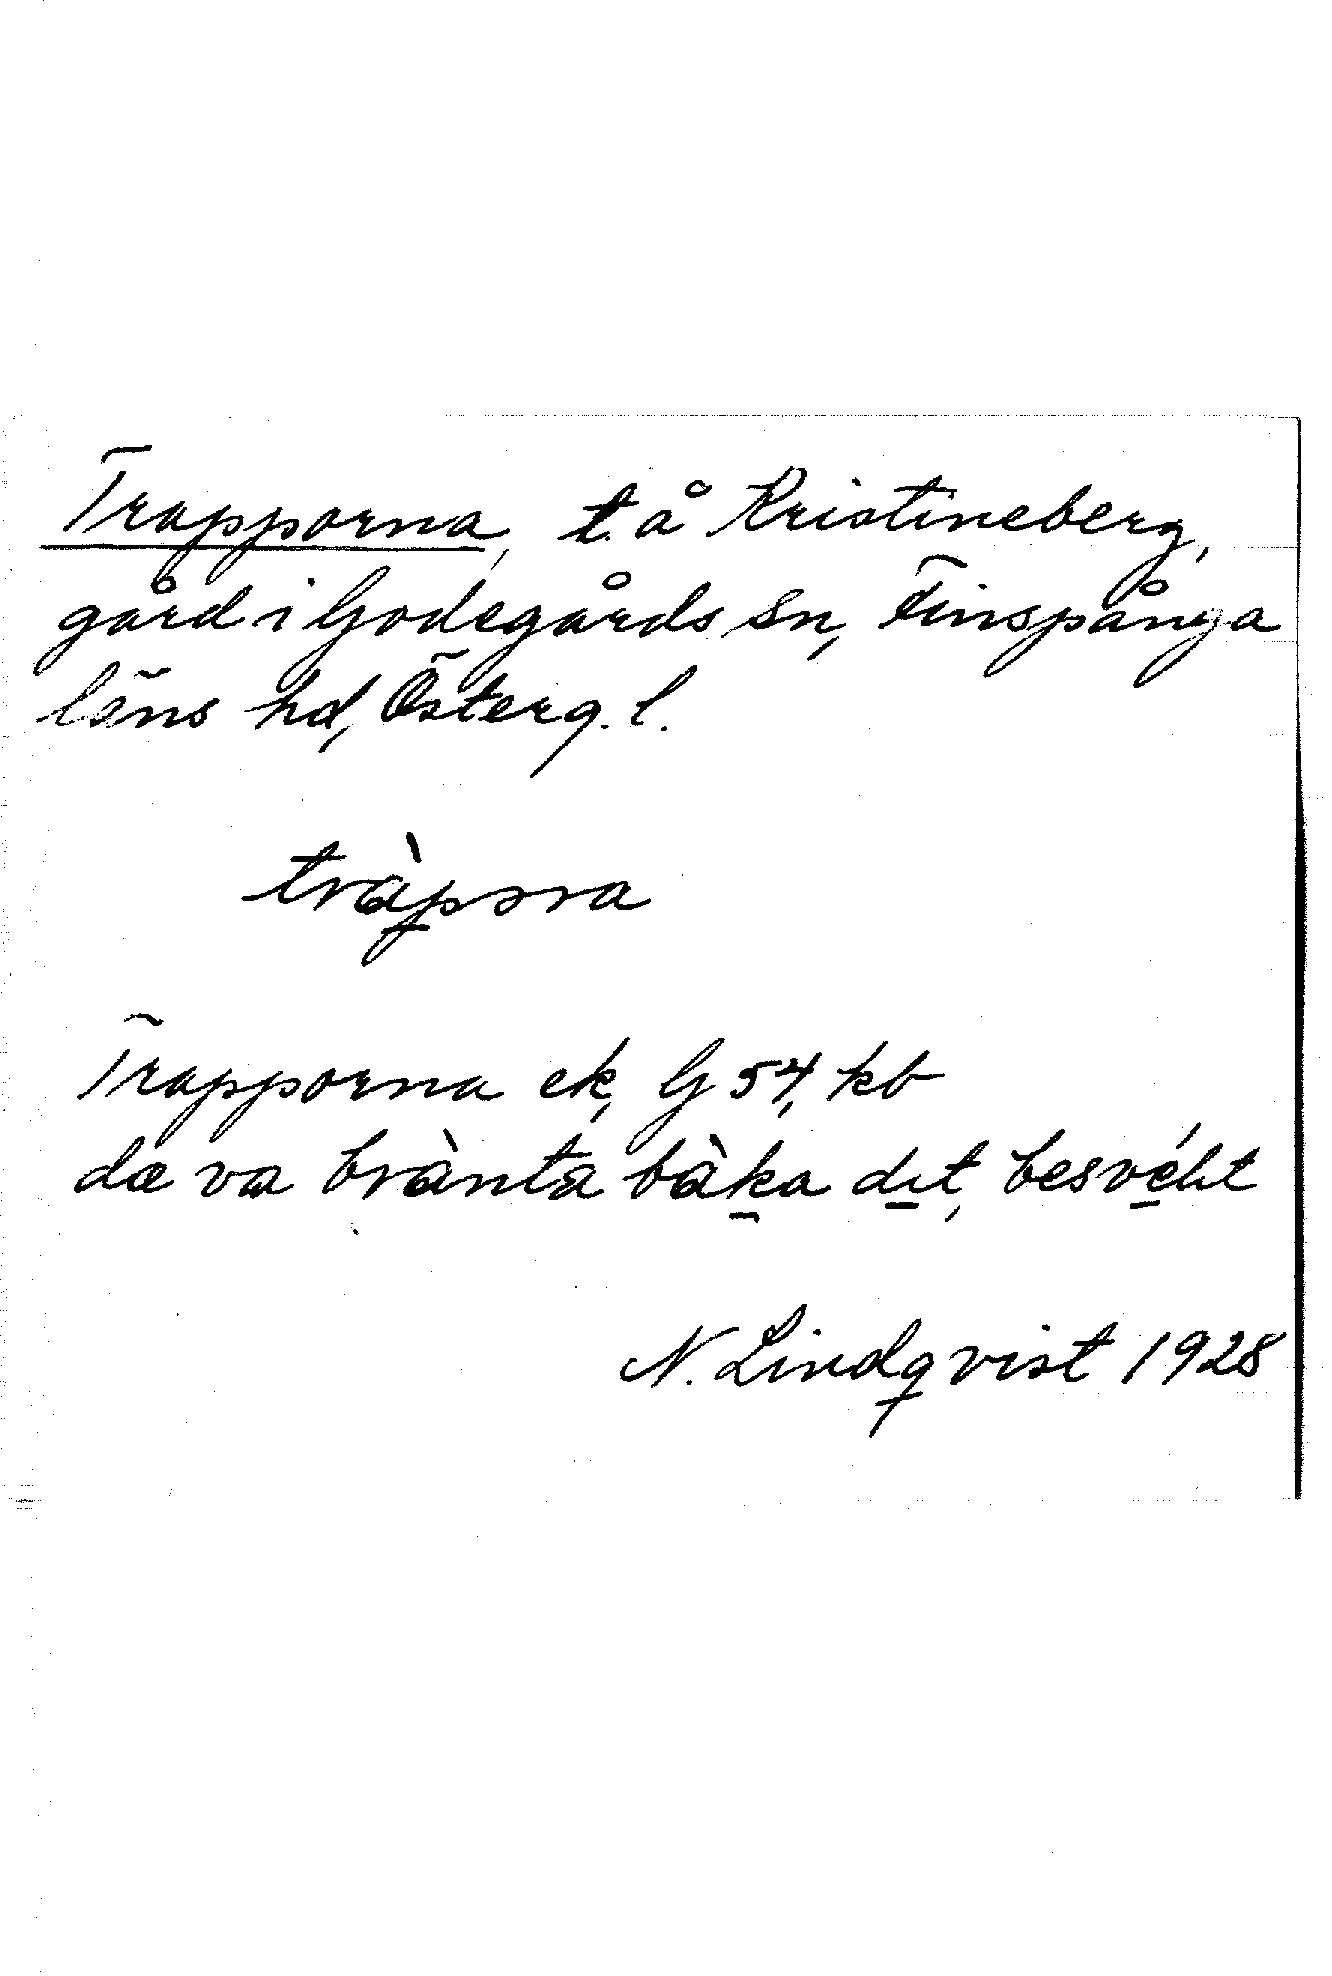 Trapporna, t. å Kristineberg,
gård i Godegårds sn, Finspånga
läns hd, Österg. l.
tràpɔra
Trapporna ek, G 54, kb
dæ va brànta bàka dit, besvé
N. Lindqvist 1928